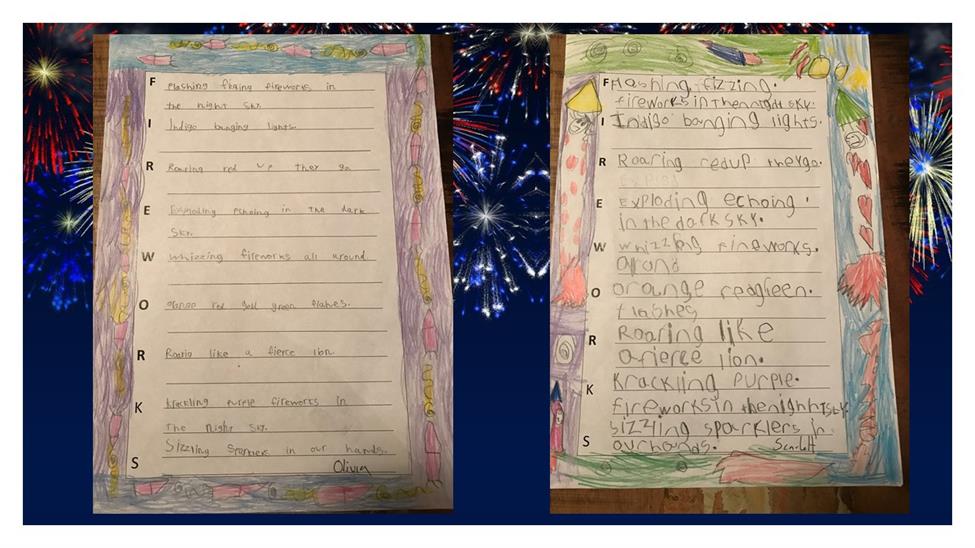 F Flashing fizzing fireworks in
the night sky.
I Indigo banging lights.
R Roaring red up they go
E Exploding echoing in the dark
sky.
W Whizzing fireworks all around
O orange red gold green flashes.
R Roaring like a fierce lion.
K krackling purple fireworks in
The night sky.
Sizzling in our hands.
S Olivia
F Flashing fizzing.
fireworks in the night sky.
I Indigo banging lights.
R Roaring red up they go.
E Exploding echoing.
in the dark sky.
W whizzing fireworks.
O orange red green.
flashes
R Roaring like
a fierce lion.
K Krackling purple.
fireworks in the night sky.
sizzling sparklers in
S our hands. Scarlett